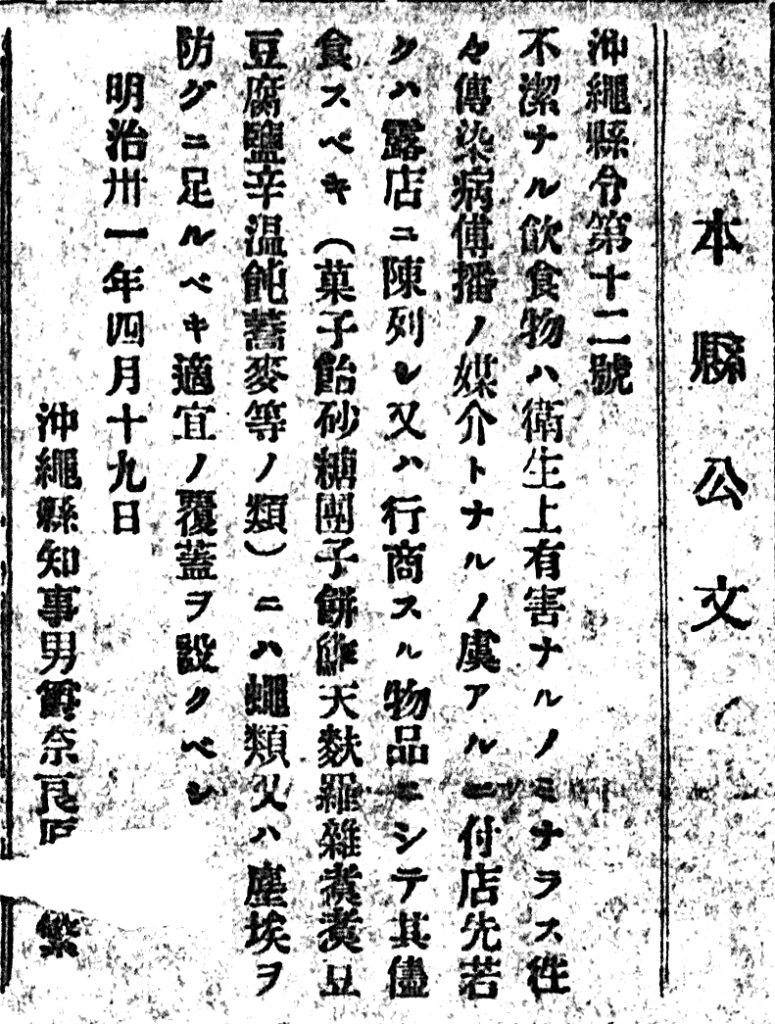 本縣公文
沖繩縣令第十二號
不潔ナル飮食物ハ衛生上有害ナルノミナラス徃
々傳染病傳播ノ媒介トナルノ虞アルニ付店先若
クハ露店ニ陳列シ又ハ行商スル物品ニシテ其儘
食スベキ（菓子飴砂糖團子餅鮓天麩羅雜煮煮豆
豆腐鹽辛温飩蕎麥等ノ類）ニハ蠅類又ハ塵埃ヲ
防グニ足ルベキ適宜ノ覆蓋ヲ設クベシ
明治卅一年四月十九日
沖繩縣知事男爵奈良原 繁